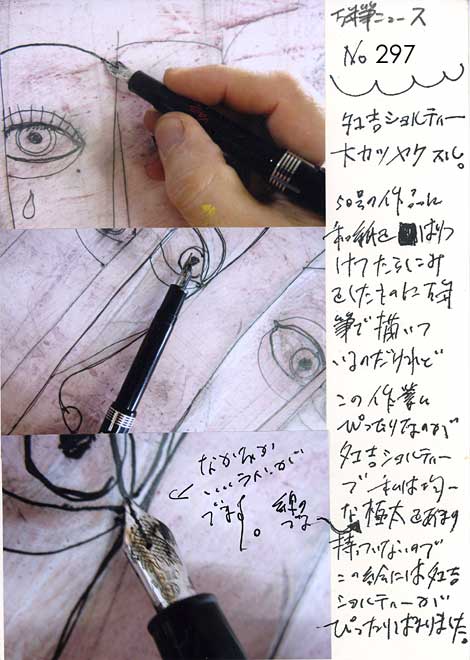 ニュース
No 297
吉ショルティー
大カツヤクスル。
50号の作品に
和紙をはりつ
けてたらしこみ
をしたものに万年
筆で描いて
いるのだけれど
この作業に
ぴったりなのが
吉ショルティー
で私は均一
な極太をあまり
持っていないので
この絵には吉
ショルティーが
ぴったりはまりました。
なかなか
いいラインが
でます。
線